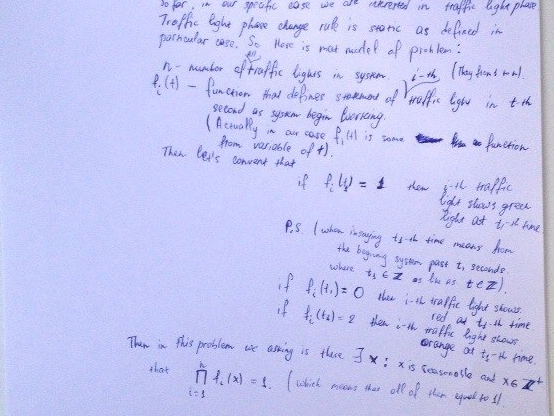 So far, in our specific case we are interested in traffic light phase
Traffic light phase change rule is static as defined in
particular case. So Here is mat model of problem:
n - number of all traffic lights in system. (They from 1 to n).
f_i(t) - function that defines statement of i-th traffic light in t-th
second as system begin working.
(Actually in our case f_i(t) is some function
from variable of t).
Then let's convent that
if f_i(t_1) = 1 then i-th traffic
light shows green
light at t_1-th time.
P.S. (when insaying t_1-th time means from
the begining system past t_1 seconds.
where t_1 ∈ Z as as t ∈ Z).
if f_i(t_1) = 0 then i-th traffic light shows
red at t_1-th time
if f_i(t_1) = 2 then i-th traffic light shows
orange at t_1-th time.
Then in this problem we asking is there ∃ x : x is seasonable and x ∈ Z^+
that ∏_{i=1}^{n} f_i(x) = 1. (which means that all of them equal to 1)